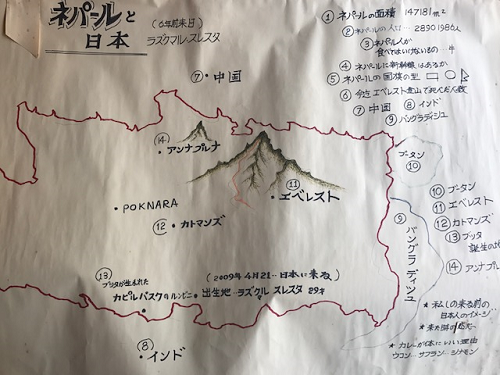 ネパールと
日本
(6年前来日)
ラズクマル・スレスタ
① ネパールの面積 147181
② ネパールの人は… 28901986人
③ ネパール人が
食べてはいけないもの… 牛
④ ネパールに新幹線はあるか
⑤ ネパールの国旗の型
⑥ 今迄エベレスト登山で死んだ人数
⑦ 中国 ⑧ インド
⑨ バングラディシュ
⑦・中国
⑭
・アンナプルナ
ブータン
⑩
・POKNARA
⑪
・エベレスト
⑫・カトマンズ
⑨
バングラディシュ
⑩ ブータン
⑪ エベレスト
⑫ カトマンズ
⑬ ブッタ
誕生の
⑭ アンナプル
⑬
ブッタが生まれた
(2009年4月21‥日本に来る)
カピルバスクのルンビニ
出生地‥ラズクマル スレスタ
⑧
・インド
★ 私しの来る前の
日本人のイメージ…
★ 来た時の
★ カレーが体にいい理由
ウコン‥サフラン‥シナモン